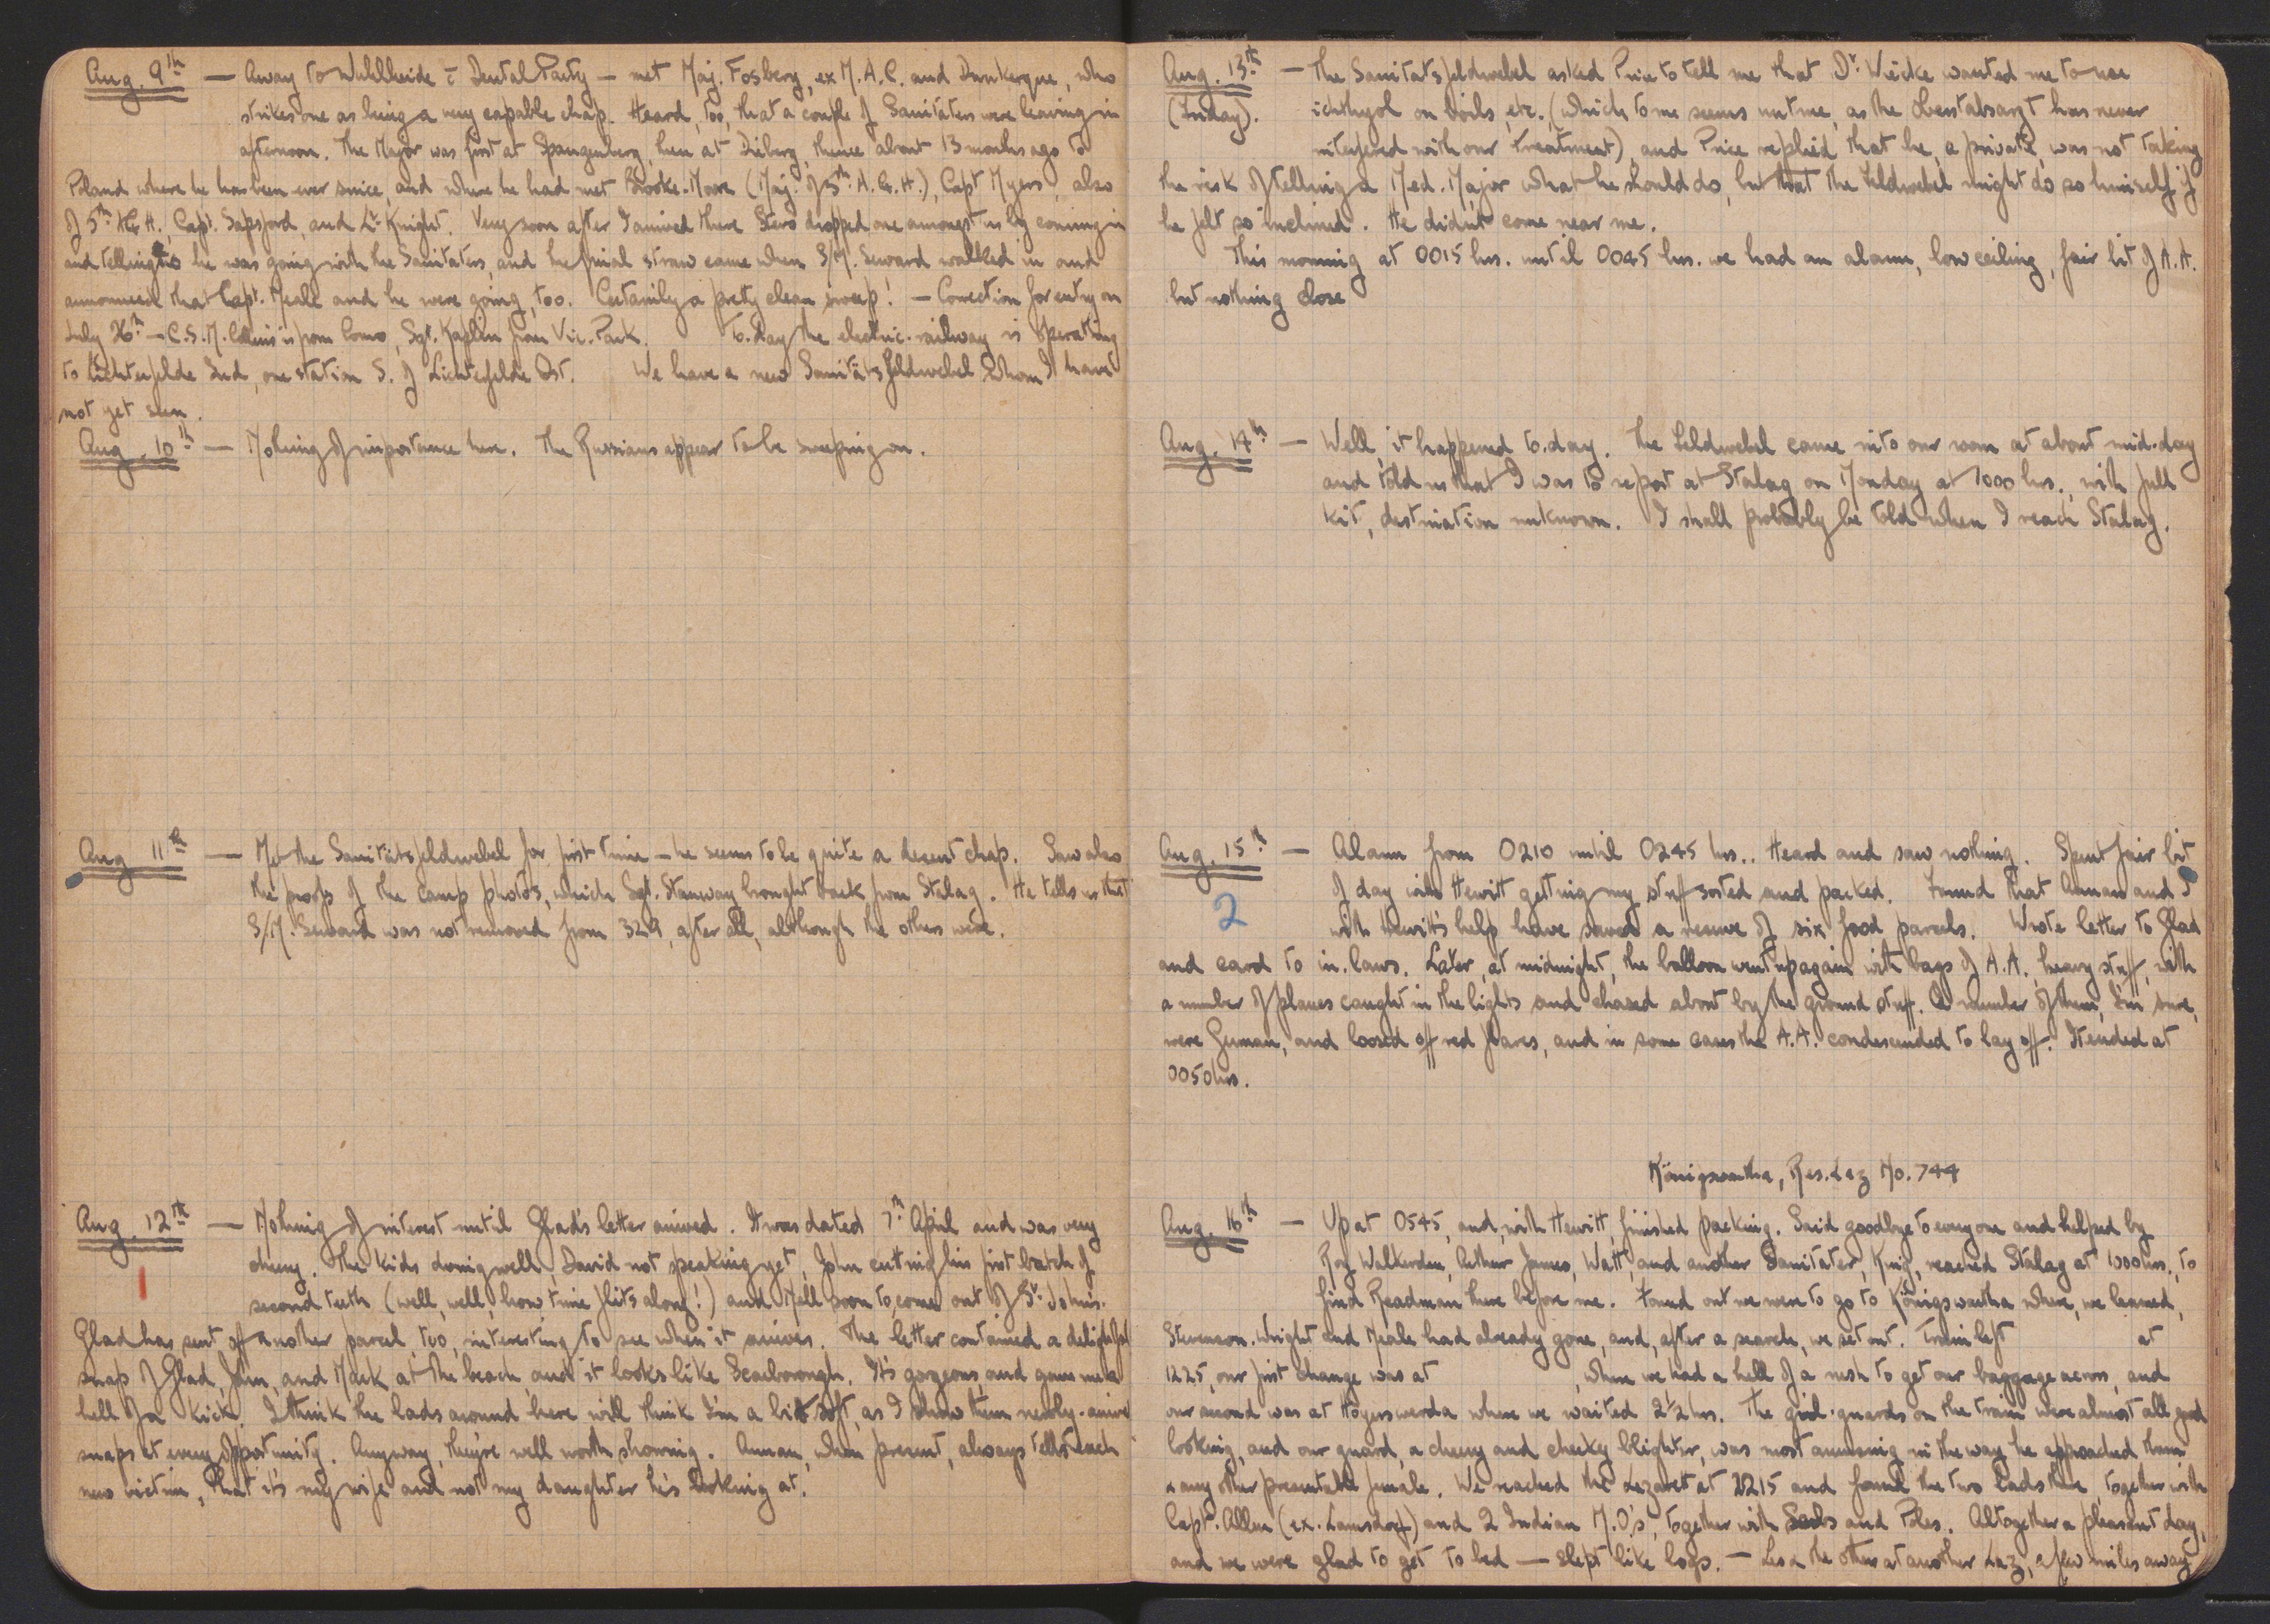 Aug. 9th — Away to Wuhlheide c̄ Dental Party — met Maj. Fosberg, ex M.A.C. and Dunkerque, who
strikes one as being a very capable chap. Heard, too, that a couple of Sanitaters were leaving in
afternoon. The Major was first at Spangenberg, then at Dieberg, thence about 13 months ago to
Poland where he has been ever since, and where he had met Brooke-Moore (Maj. of 5th A.G.H.), Capt Myers, also
of 5th A.G.H., Capt. Sapsford, and Lt Knight. Very soon after I arrived there Steve dropped one amongst us by coming in
and telling us he was going with the Sanitaters, and the final straw came when S/M. Seward walked in and
announced that Capt. Meale and he were going, too. Certainly a pretty clean sweep! — Correction for entry on
July 26th — C.S.M. Collins is from Como, Sgt. Kaplin from Vic. Park. To-day the electric-railway is operating
to Lichterfelde Sud, one station S. of Lichterfelde Ost. We have a new Sanitätsfeldwebel whom I have
not yet seen.
Aug. 10th — Nothing of importance here. The Russians appear to be sweeping on.
Aug 11th — Met the Sanitätsfeldwebel for first time — he seems to be quite a decent chap. Saw also
the proofs of the camp photos, which Sgt. Stanway brought back from Stalag. He tells us that
S/M. Seward was not removed from 329, after all, although the others were.
Aug. 12th — Nothing of interest until Glad's letter arrived. It was dated 7th April and was very
cheery. The kids doing well, David not speaking yet, John cutting his first batch of
second teeth (well, well, how time flits along!) and Nell soon to come out of St. John's.
Glad has sent off another parcel, too, interesting to see when it arrives. The letter contained a delightful
snap of Glad, John, and Mark at the beach and it looks like Scarborough. It's gorgeous and gave me a
hell of a kick. I think the lads around here will think I'm a bit soft, as I show them newly-arrived
snaps at every opportunity. Anyway, they're well worth showing. Annan, when present, always tells each
new victim, that it's my wife and not my daughter he's looking at.
1
Aug. 13th — The Sanitatsfeldwebel asked Price to tell me that Dr. Wiecke wanted me to use
(Friday). ichthyol on boils, etc., (which to me seems untrue, as the Oberstabsarzt has never
interfered with our treatment), and Price replied that he, a private, was not taking
the risk of telling a Med. Major what he should do, but that the Feldwebel might do so himself if
he felt so inclined. He didn't come near me.
This morning at 0015 hrs. until 0045 hrs. we had an alarm, low ceiling, fair bit of A.A.
but nothing close
Aug. 14th — Well, it happened to-day. The Feldwebel came into our room at about mid-day
and told us that I was to report at Stalag on Monday at 1000 hrs., with full
kit, destination unknown. I shall probably be told when I reach Stalag.
Aug. 15th — Alarm from 0210 until 0245 hrs.. Heard and saw nothing. Spent fair bit
of day with Hewitt getting my stuff sorted and packed. Found that Annan and I
2 with Hewitt's help have saved a reserve of six food parcels. Wrote letter to Glad
and card to in-laws. Later, at midnight, the balloon went up again with bags of A.A., heavy stuff, with
a number of planes caught in the lights and chased about by the ground stuff. A number of them, I'm sure,
were German, and loosed off red flares, and in some cases the A.A. condescended to lay off. It ended at
0050 hrs.
Königswartha, Res. Laz No. 744
Aug. 16th — Up at 0545, and, with Hewitt, finished packing. Said goodbye to everyone and helped by
Roy Walkerden, Arthur James, Watt, and another Sanitater, King, reached Stalag at 1000 hrs., to
find Readman there before me. Found out we were to go to Königswartha where, we learned,
Stevenson-Wright and Meale had already gone, and, after a search, we set out. Train left at
1225, our first change was at , when we had a hell of a rush to get our baggage across, and
our second was at Hoyerswerda where we waited 2½ hrs. The girl-guards on the train were almost all good
looking, and our guard, a cheery and cheeky blighter, was most amusing in the way he approached them
& any other presentable female. We reached the Lazarett at 2215 and found the two lads there, together with
Capt. Allen (ex-Lamsdorf) and 2 Indian M.O's, together with Serbs and Poles. Altogether a pleasant day,
and we were glad to get to bed — slept like logs. — Les & the other at another Laz, a few miles away